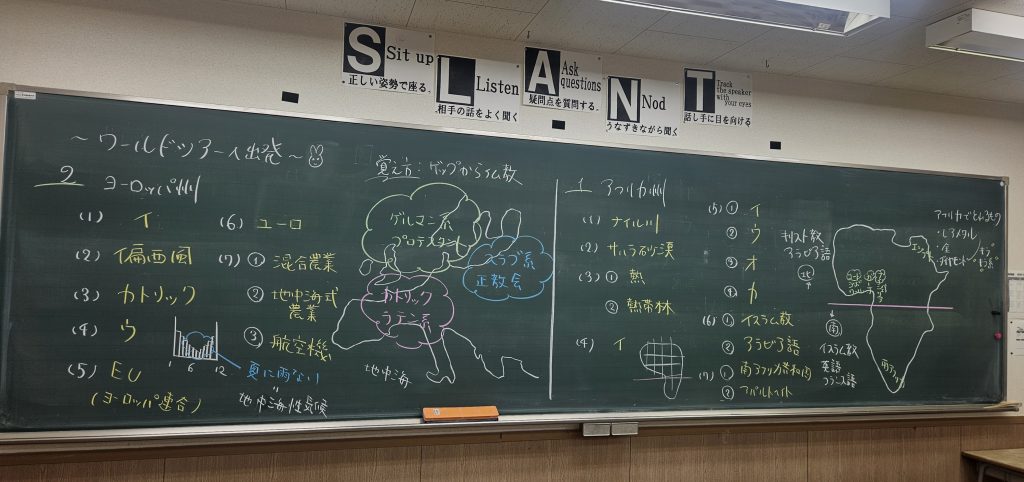 S Sit up
.正しい姿勢で座る.
L Listen
相手の話をよく聞く
A Ask questions
疑問点を質問する.
N Nod
うなずきながら聞く
T Track the speaker with your eyes
話し手に目を向ける
～ワールドツアーへ出発～
2 ヨーロッパ州
(1) イ
(2) 偏西風
(3) カトリック
(4) ウ
(5) EU
(ヨーロッパ連合)
(6) ユーロ
(7) ① 混合農業
② 地中海式農業
③ 航空機
1 6 12
夏に雨ない
地中海性気候
覚え方:
ゲルマン系
プロテスタント
スラブ系
正教会
カトリック
ラテン系
地中海
1 アフリカ州
(1) ナイル川
(2) サハラ砂漠
(3) ① 熱
② 熱帯林
(4) イ
(5) ① イ
② ウ
③ オ
④ カ
(6) ① イスラム教
② アラビア語
(7) ① 南アフリカ共和国
② アパルトヘイト
キリスト教
アラビア語
北
南
イスラム教
英語
フランス語
アフリカでとれるもの
・レアメタル
・金